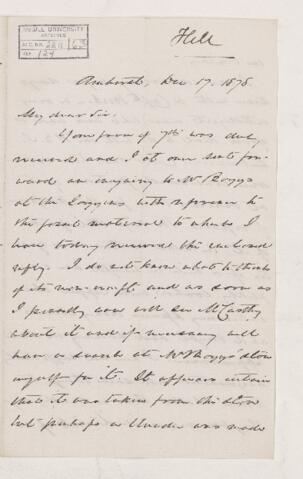 McGILL UNIVERSITY
ARCHIVES
ACC. NO. 2211
REF. 124
Hill
Amherst, Dec 17, 1878
My dear Sir.
Your favor of 7th was duly
received and I at once sent for-
ward an inquiry to Mr Boggs
at the Joggins with reference to
the fossil material to which I
have today received the enclosed
reply. I do not know what to think
of its non-receipt and as soon as
I possibly can will see McCarthy
about it and if necessary will
have a search at Mr Boggs' store
myself for it. It appears certain
that it was taken from the store
but perhaps a blunder was made